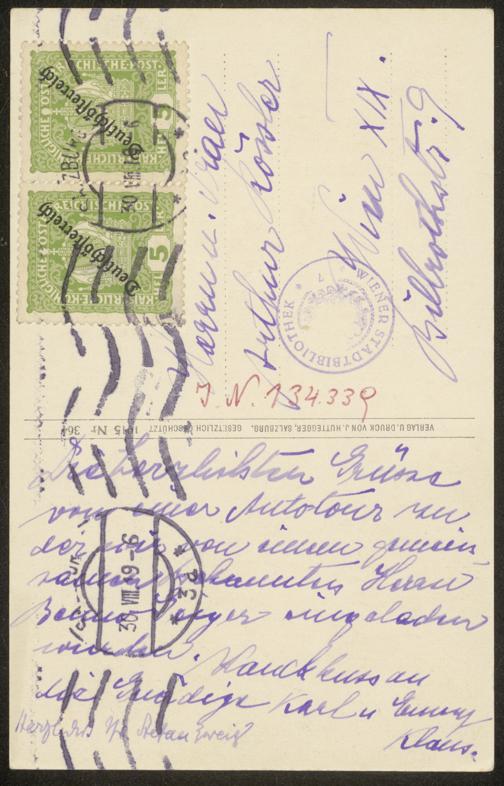 KAISERLICHE KÖNIGLICHE ÖSTERREICHISCHE POST
5 HELLER
Deutschösterreich
KAISERLICHE KÖNIGLICHE ÖSTERREICHISCHE POST
5 HELLER
Deutschösterreich
SALZBURG
30 VIII 19
Herrn u. Frau
Arthur Rössler
Wien XIX.
Billrothstr. 9
WIENER STADTBIBLIOTHEK
I. N. 134339
VERLAG U. DRUCK VON J. HUTTEGGER, SALZBURG. GESETZLICH GESCHÜTZT 1915 Nr 36
Die herzlichsten Grüsse
von einer Autotour zu
der wir von einem gemein
samen Bekannten Herrn
Benno Geiger eingeladen
wurden. Handkuss an
die Gnädige Karl u Emmy
Klaus.
Herzlichst Ihr Stefan Zweig
30 VIII 19-6
* 3d *